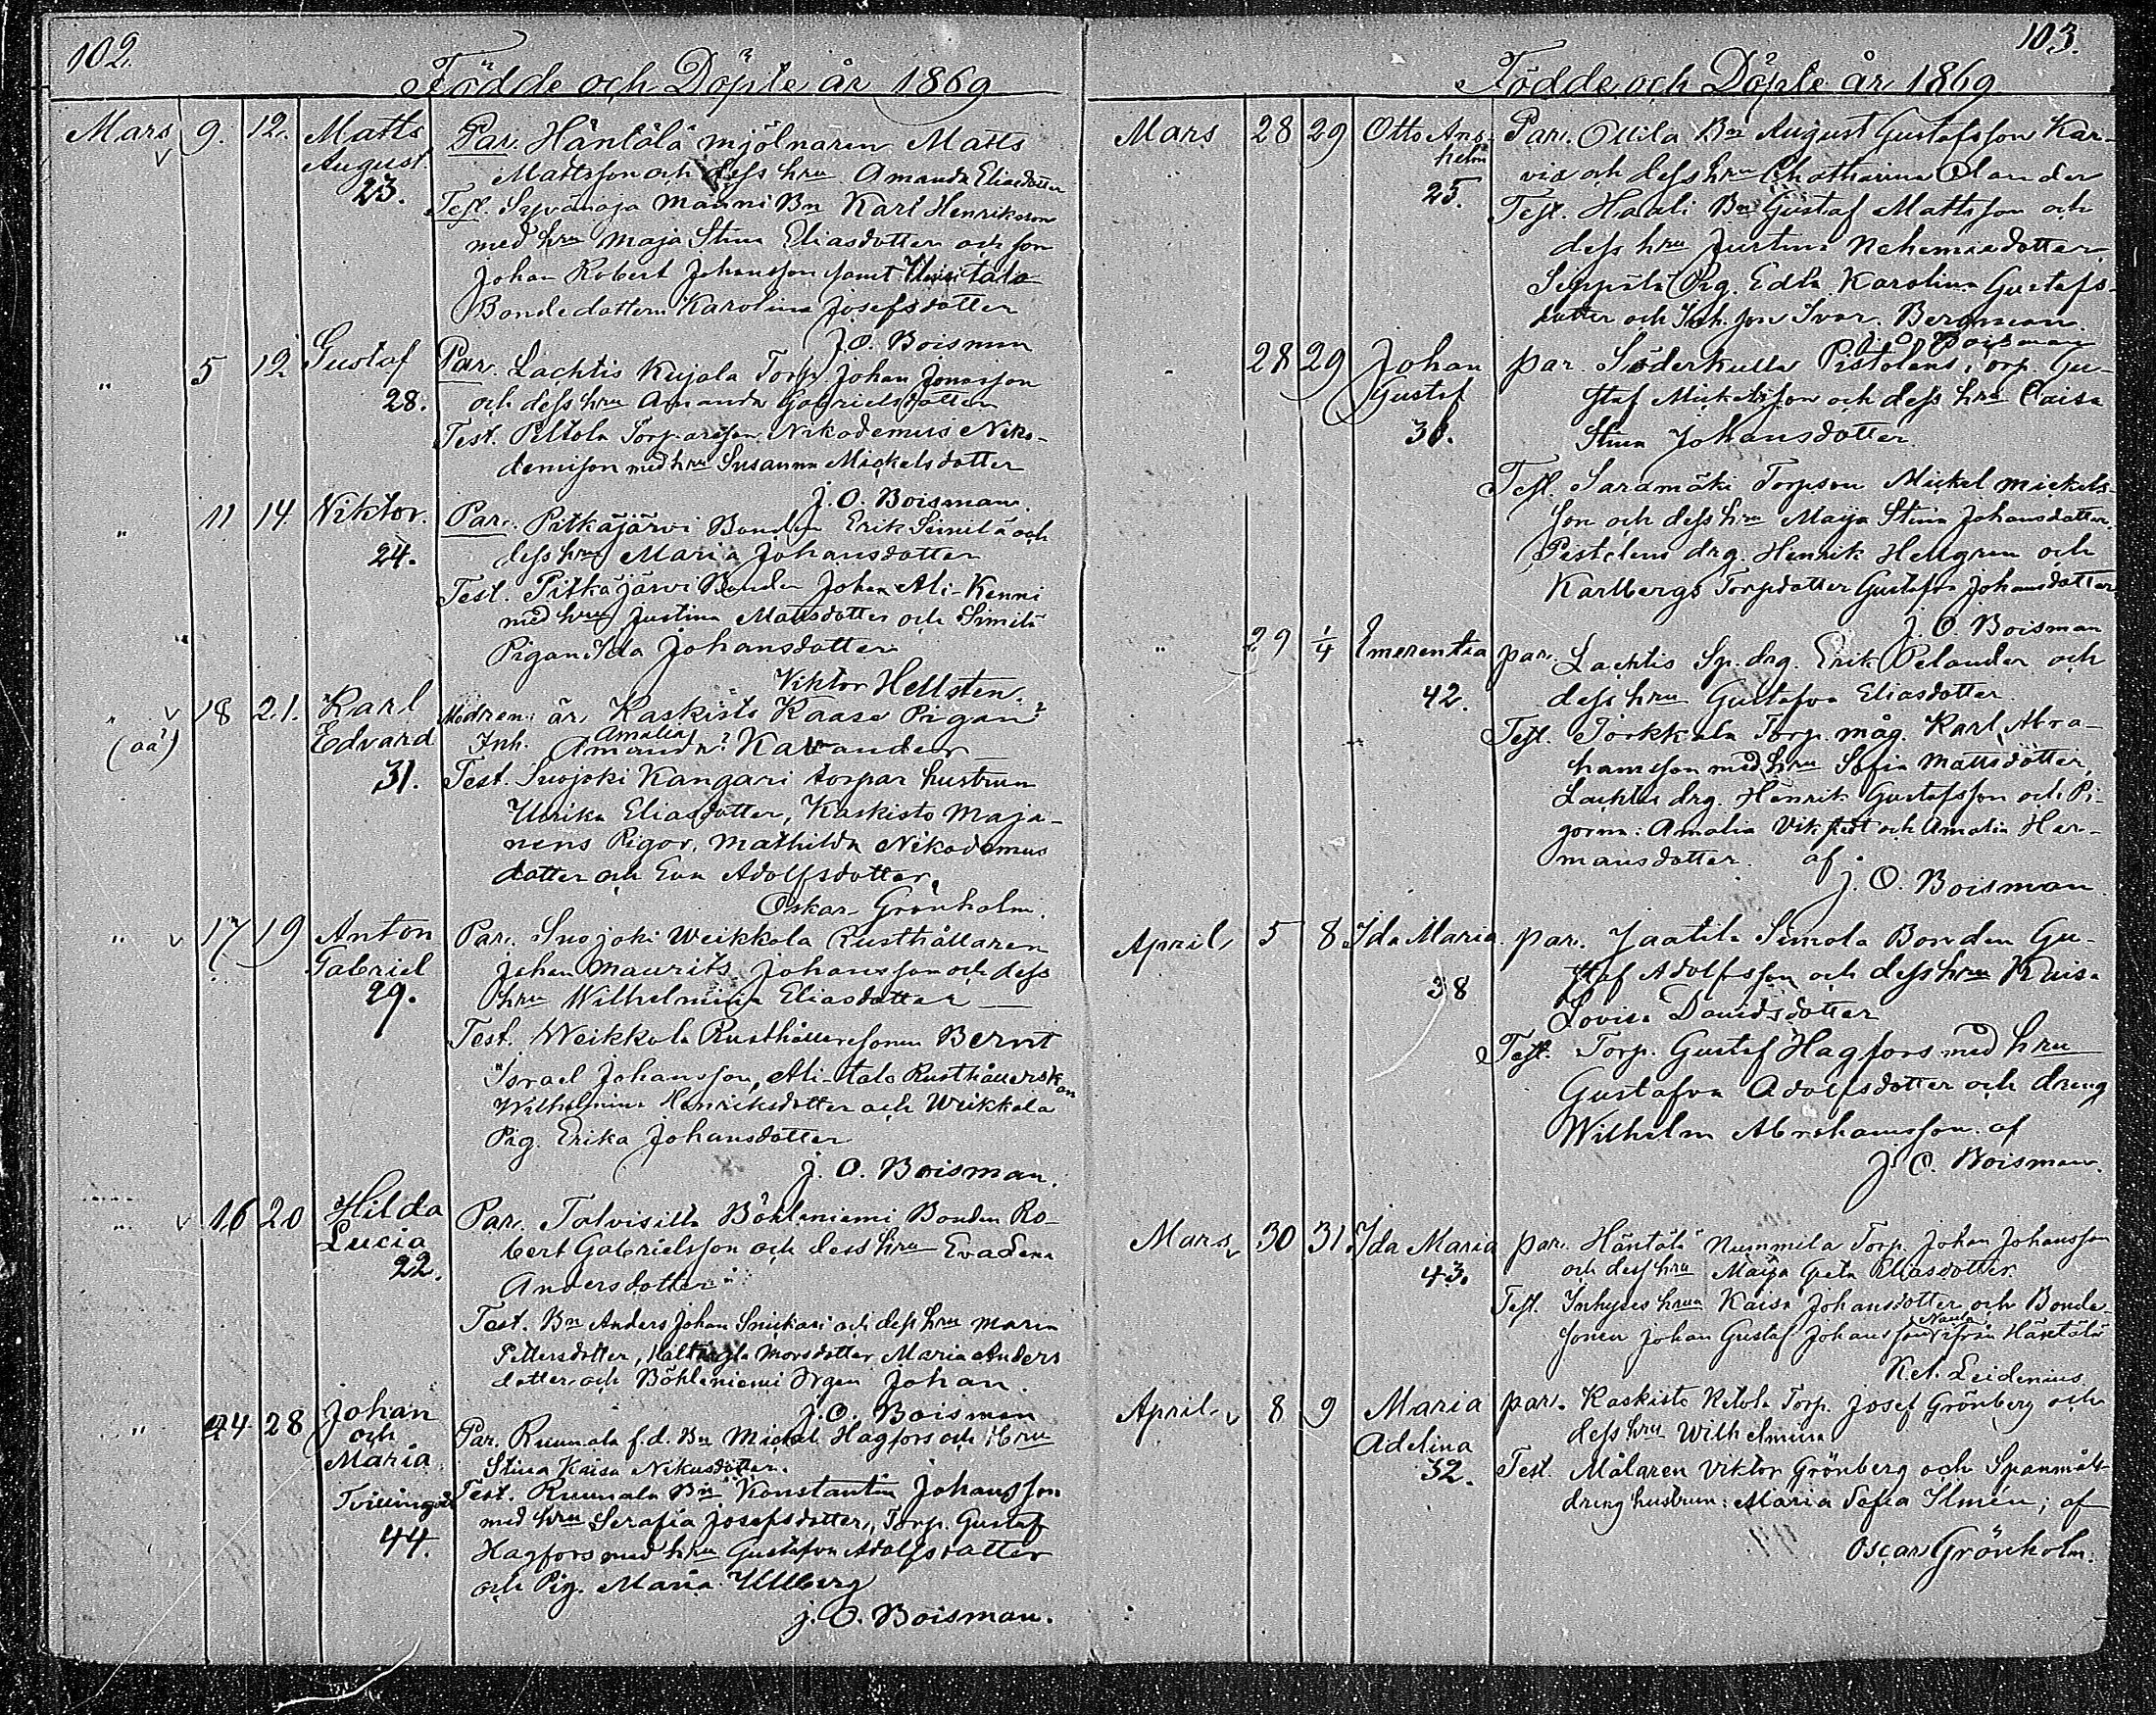 102.
Födde och Döpte år 1869
Mars 9. 12. Matts August. 23.
Par. Häntälä mjölnaren Matts
Mattsson och dess hru Amanda Eliasdotter
Test. Syvänoja Manni Bn Karl Henriksson
med hru Maja Stina Eliasdotter och son
Johan Robert Johansson samt Uusitalo
Bondedottern Karolina Josefsdotter
J. O. Boisman
" 5 12 Gustaf 28.
Par. Lachtis Kujala Torp. Johan Jonasson
och dess hru Amanda Gabrielsdotter
Test. Peltola Torpareson Nikodemus Niko-
demison med hru Susanna Mickelsdotter
J. O. Boisman.
" 11 14 Viktor. 24.
Par. Pitkäjärvi Bonden Erik Similä och
dess hru Maria Johansdotter
Test. Pitkäjärvi Bonden Johan Ali-Kenni
med hru Justina Mattsdotter och Similä
Pigan Ida Johansdotter
Viktor Hellsten.
" 18 21. Karl Edvard 31.
(oä)
Modren: är Kaskisto Kaase Pigan?
Inh. Amanda? Kavander
Amalia
Test. Suojoki Kangari torpar hustrun
Ulrika Eliasdotter, Kaskisto Maja-
nens Pigor, Mathilda Nikodemus
dotter och Eva Adolfsdotter.
Oskar Grönholm.
" 17 19 Anton Gabriel 29.
Par. Suojoki Weikkola Rusthållaren
Johan Maurits Johansson och dess
hru Wilhelmina Eliasdotter
Test. Weikkola Rusthålleresonen Bernt
Israel Johansson, Ali-talo Rusthållerskan
Wilhelmina Henriksdotter och Weikkola
Pig. Erika Johansdotter
J. O. Boisman.
" 16 20 Hilda Lucia 22.
Par. Talvisilta Böhleniemi Bonden Ro-
bert Gabrielsson och dess hru Eva Lena
Andersdotter
Test. Bn Anders Johan Snickari och dess hru Maria
Pettersdotter, Morsdotter Maria Anders
dotter och Böhleniemi Johan.
J. O. Boisman
" 24 28 Johan och Maria Tvillingar 44.
Par. Ruumala f.d. Bn Mickel Hagfors och Hru
Stina Kaisa Nikusdotter.
Test. Ruumala Bn Konstantin Johansson
med hru Serafia Josefsdotter, Torp. Gustaf
Hagfors med hru Gustafva Adolfsdotter
och Pig. Maria Ullberg
J. O. Boisman.
103.
Födde och Döpte år 1869
Mars 28 29 Otto Ans-helm 25.
Par. Ollila Bn August Gustafsson Kar-
via och dess hru Chatharina Olander
Test. Haali Bn Gustaf Mattsson och
dess hru Justina Nehemiedotter,
Seppälä Pig. Edla Karolina Gustafs-
dotter och Inh. son Ivar Bergman.
J. O. Boisman
" 28 29 Johan Gustaf 36.
par. Söderkulla Pistolens Torp. Gu-
staf Mickelsson och dess hru Caisa
Stina Johansdotter.
Test. Saramäki Torpson Mickel Mickels-
son och dess hru Maija Stina Johansdotter.
Pistolens drg. Henrik Hellgren och
Karlbergs Torpdotter Gustafva Johansdotter
J. O. Boisman
" 29 1/4 Emerentia 42.
par. Lachtis Sp. drg. Erik Pelander och
dess hru Gustafva Eliasdotter.
Test. Torkkala Torp. måg. Karl Abra-
hamsson med hru Sofia Mattsdotter,
Lachtis drg. Henrik Gustafsson och Pi-
gorna: Amalia Vikstedt och Amalia Her-
mansdotter. af
J. O. Boisman
April 5 8 Ida Maria 38
par. Jaatila Simola Bonden Gu-
staf Adolfsson och dess hru Kaisa
Lovisa Davidsdotter
Test. Torp. Gustaf Hagfors med hru
Gustafva Adolfsdotter och dreng
Wilhelm Abrahamsson. af
J. O. Boisman.
Mars 30 31 Ida Maria 43.
par. Häntälä Nummila Torp. Johan Johansson
och dess hru Maija Greta Eliasdotter.
Test. Inhyses hrun Kaisa Johansdotter och Bonde-
sonen Johan Gustaf Johansson ifrån Häntälä
K. A. Leidenius
April 8 9 Maria Adelina 32.
par. Kaskisto Ketola Torp. Josef Grönberg och
dess hru Wilhelmina
Test. Målaren Viktor Grönberg och Spanmåls-
dreng hustrun: Maria Sofia Ilmén; af
Oscar Grönholm.